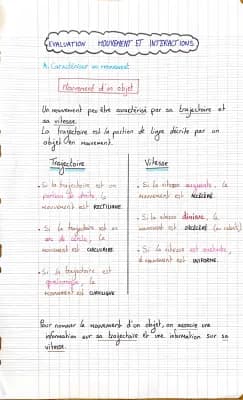 EVALUATION MOUVEMENT ET INTERACTIONS
A. Caractériser un mouvement
Mouvement d'un objet
Un mouvement peu être caractérisé par sa trajectoire et
sa vitesse.
La trajectoire est la portion de ligne décrite par un
objet en mouvement.
Trajectoire
• Si la trajectoire est une
portion de droite, le
mouvement est RECTILIGNE.
• Si la trajectoire est un
arc de cercle, le
mouvement est CIRCULAIRE.
• Si la trajectoire est
quelconque, le
mouvement est CURVILIGNE
Vitesse
• Si la vitesse augmente, le
mouvement est ACCÉLÉRÉ.
• Si la vitesse diminue, le
mouvement est DÉCÉLÉRÉ (ou ralenti)
• Si la vitesse est constante,
le mouvement est UNIFORME.
Pour nommer le mouvement d'un objet, on associe une
information sur sa trajectoire et une information sur sa
vitesse.